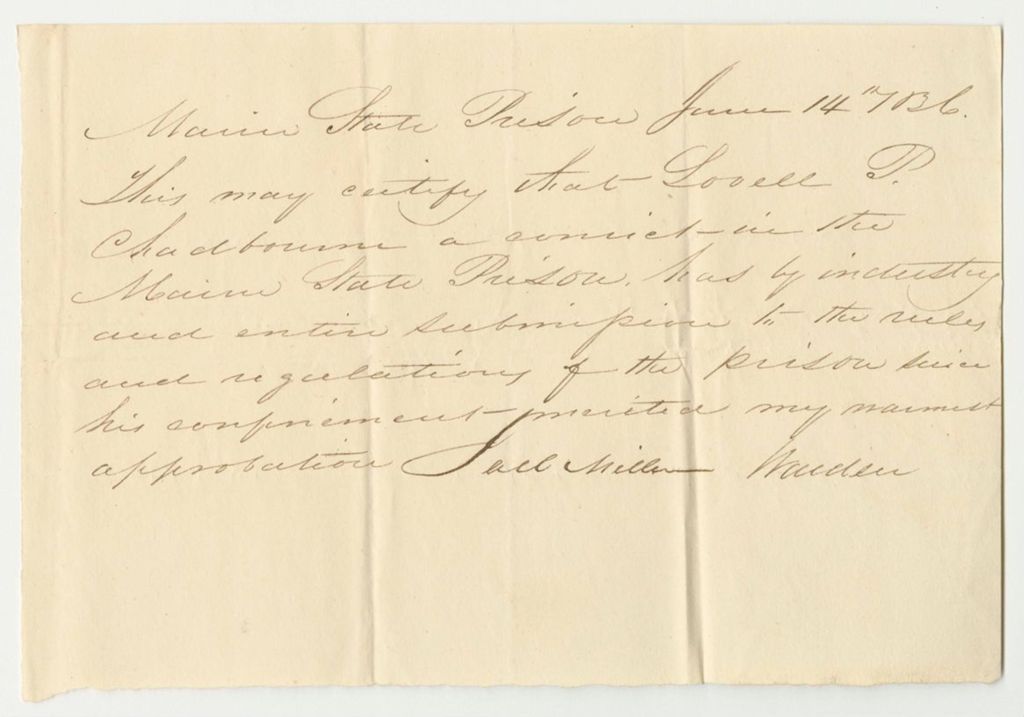 Maine State Prison June 14th 1836.
This may certify that Lovell P.
Chadbourne a convict in the
Maine State Prison. has by industry
and entire submission to the rules
and regulations of the prison since
his confinement merited my warmest
approbation Joel Miller Warden